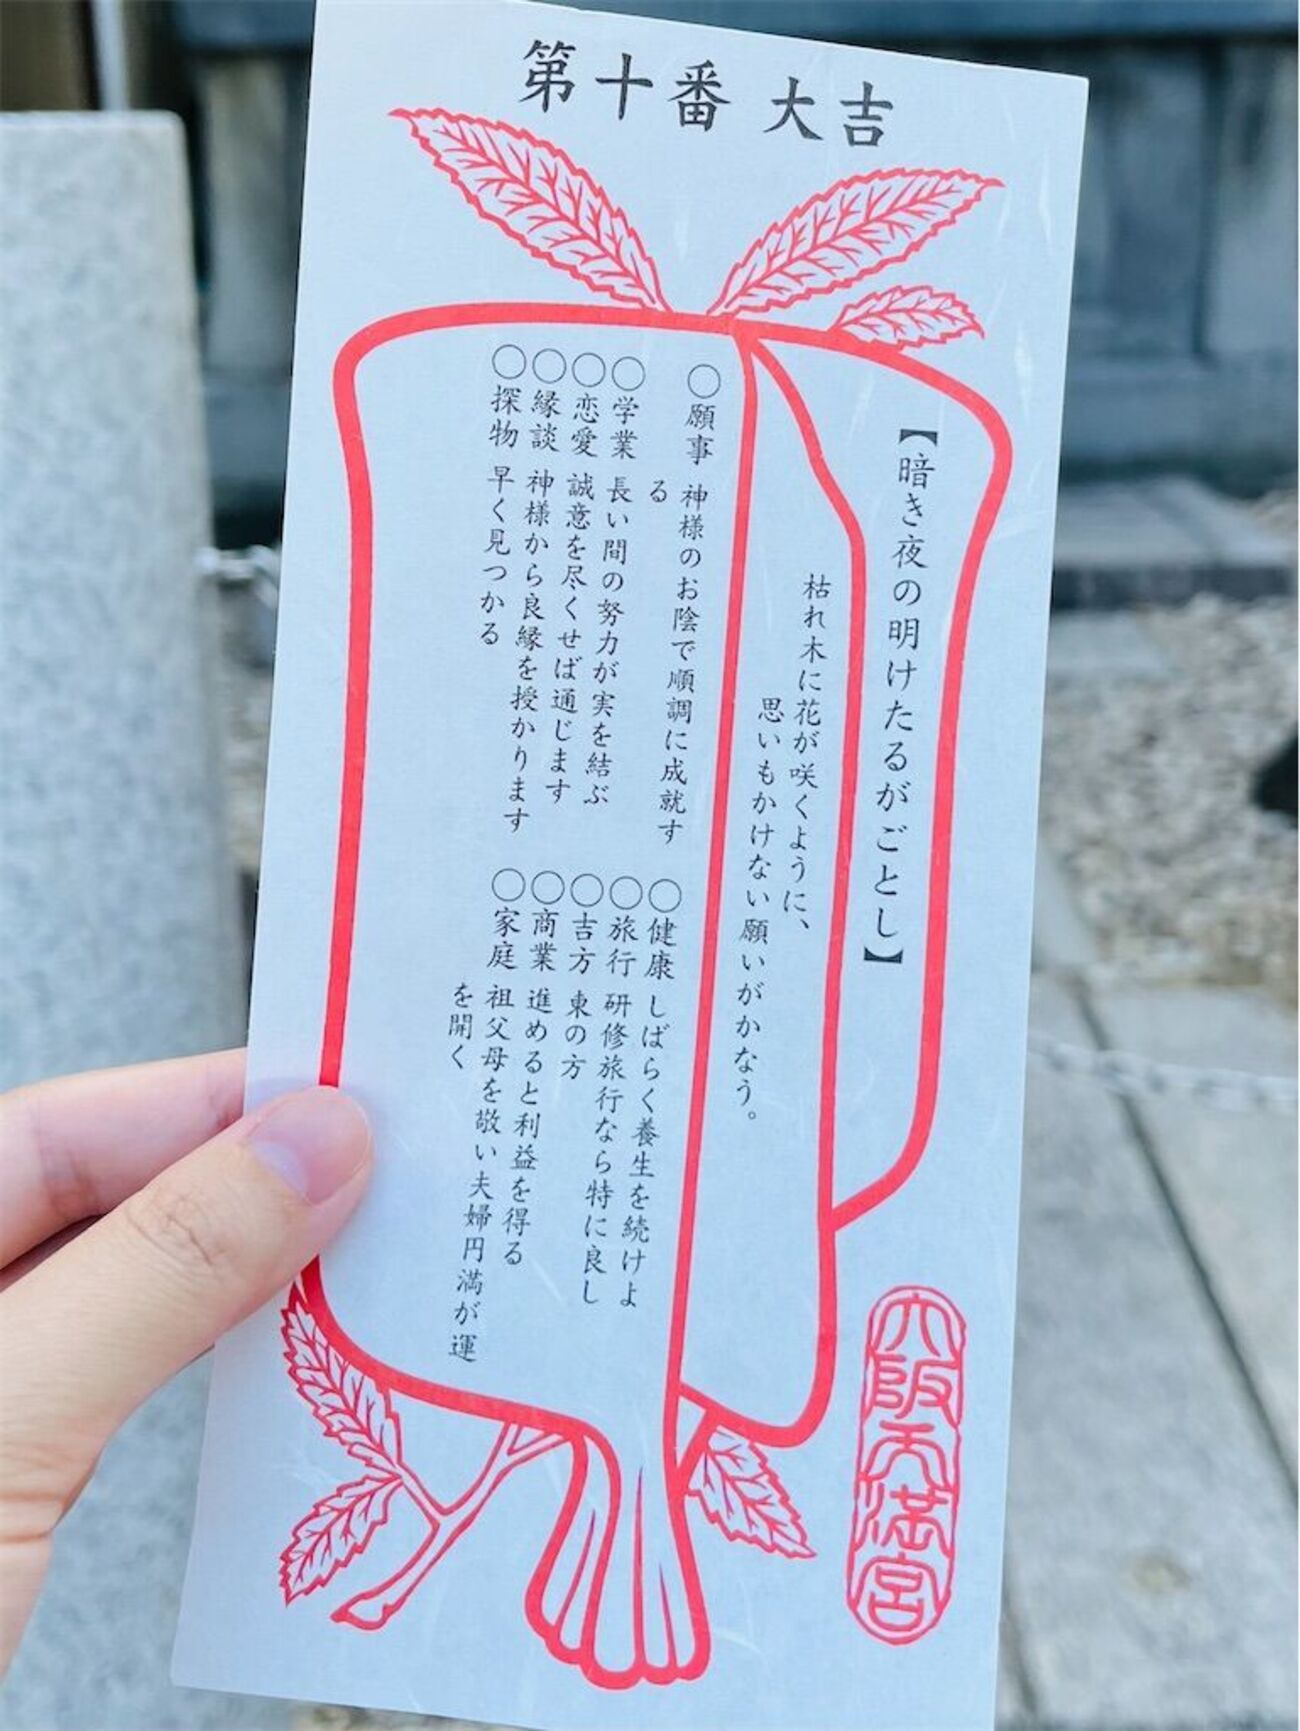 第十番 大吉
【暗き夜の明けたるがごとし】
枯れ木に花が咲くように、
思いもかけない願いがかなう。
○願事 神様のお陰で順調に成就す
る
○学業 長い間の努力が実を結ぶ
○恋愛 誠意を尽くせば通じます
○縁談 神様から良縁を授かります
○探物 早く見つかる
○健康 しばらく養生を続けよ
○旅行 研修旅行なら特に良し
○吉方 東の方
○商業 進めると利益を得る
○家庭 祖父母を敬い夫婦円満が運
を開く
大阪天満宮